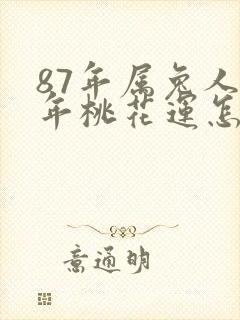 87年属兔人
年桃花运怎
意通明